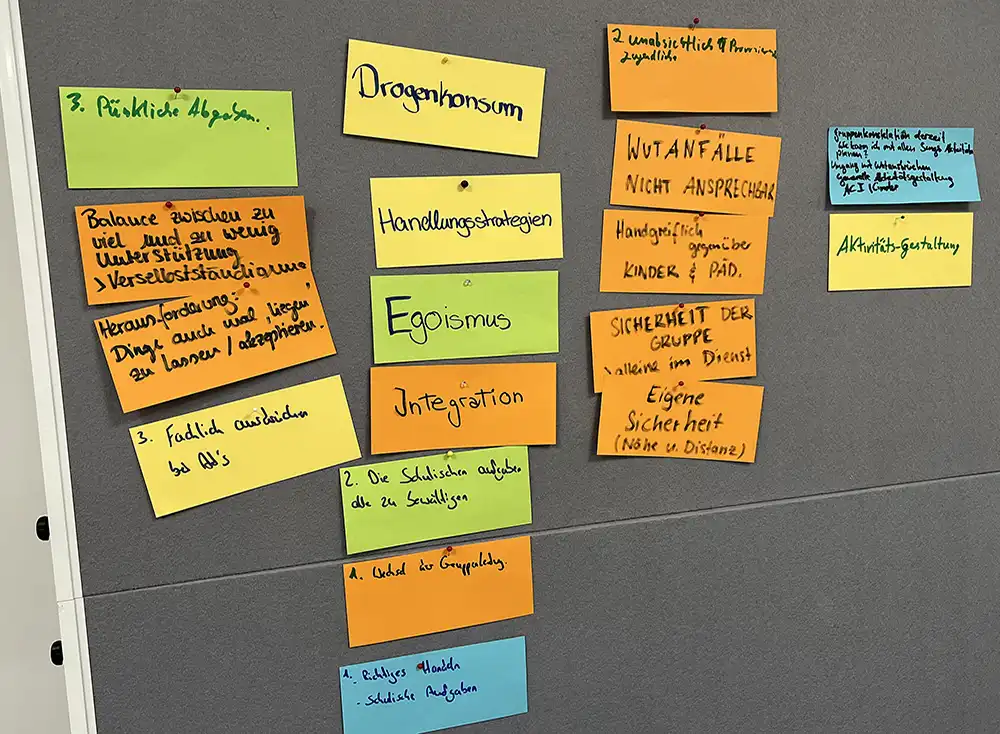 3. Pünktliche Abgaben.
Balance zwischen zu
viel und zu wenig
Unterstützung
> Verselbstständigung
Herausforderung:
Dinge auch mal "liegen"
zu lassen / akzeptieren.
3. Fachlich
bei
Drogenkonsum
Handlungsstrategien
Egoismus
Integration
2. Die Schulischen aufgaben
alle zu bewältigen
1. Wechsel der Gruppenleitung.
1.
- Richtiges Handeln
- Schulische Aufgaben
2 unabsichtlich
Jugendliche
WUTANFÄLLE
NICHT ANSPRECHBAR
Handgreiflich
gegenüber
KINDER & PÄD.
SICHERHEIT DER
GRUPPE
> alleine im Dienst
Eigene
Sicherheit
(Nähe u. Distanz)
Gruppenkonstellation derzeit
Wie kann ich mit allen Jungs Aktivitäten
planen?
Umgang mit Wutausbrüchen
Generelle Aktivitätsgestaltung
Kinder
Aktivitäts-Gestaltung